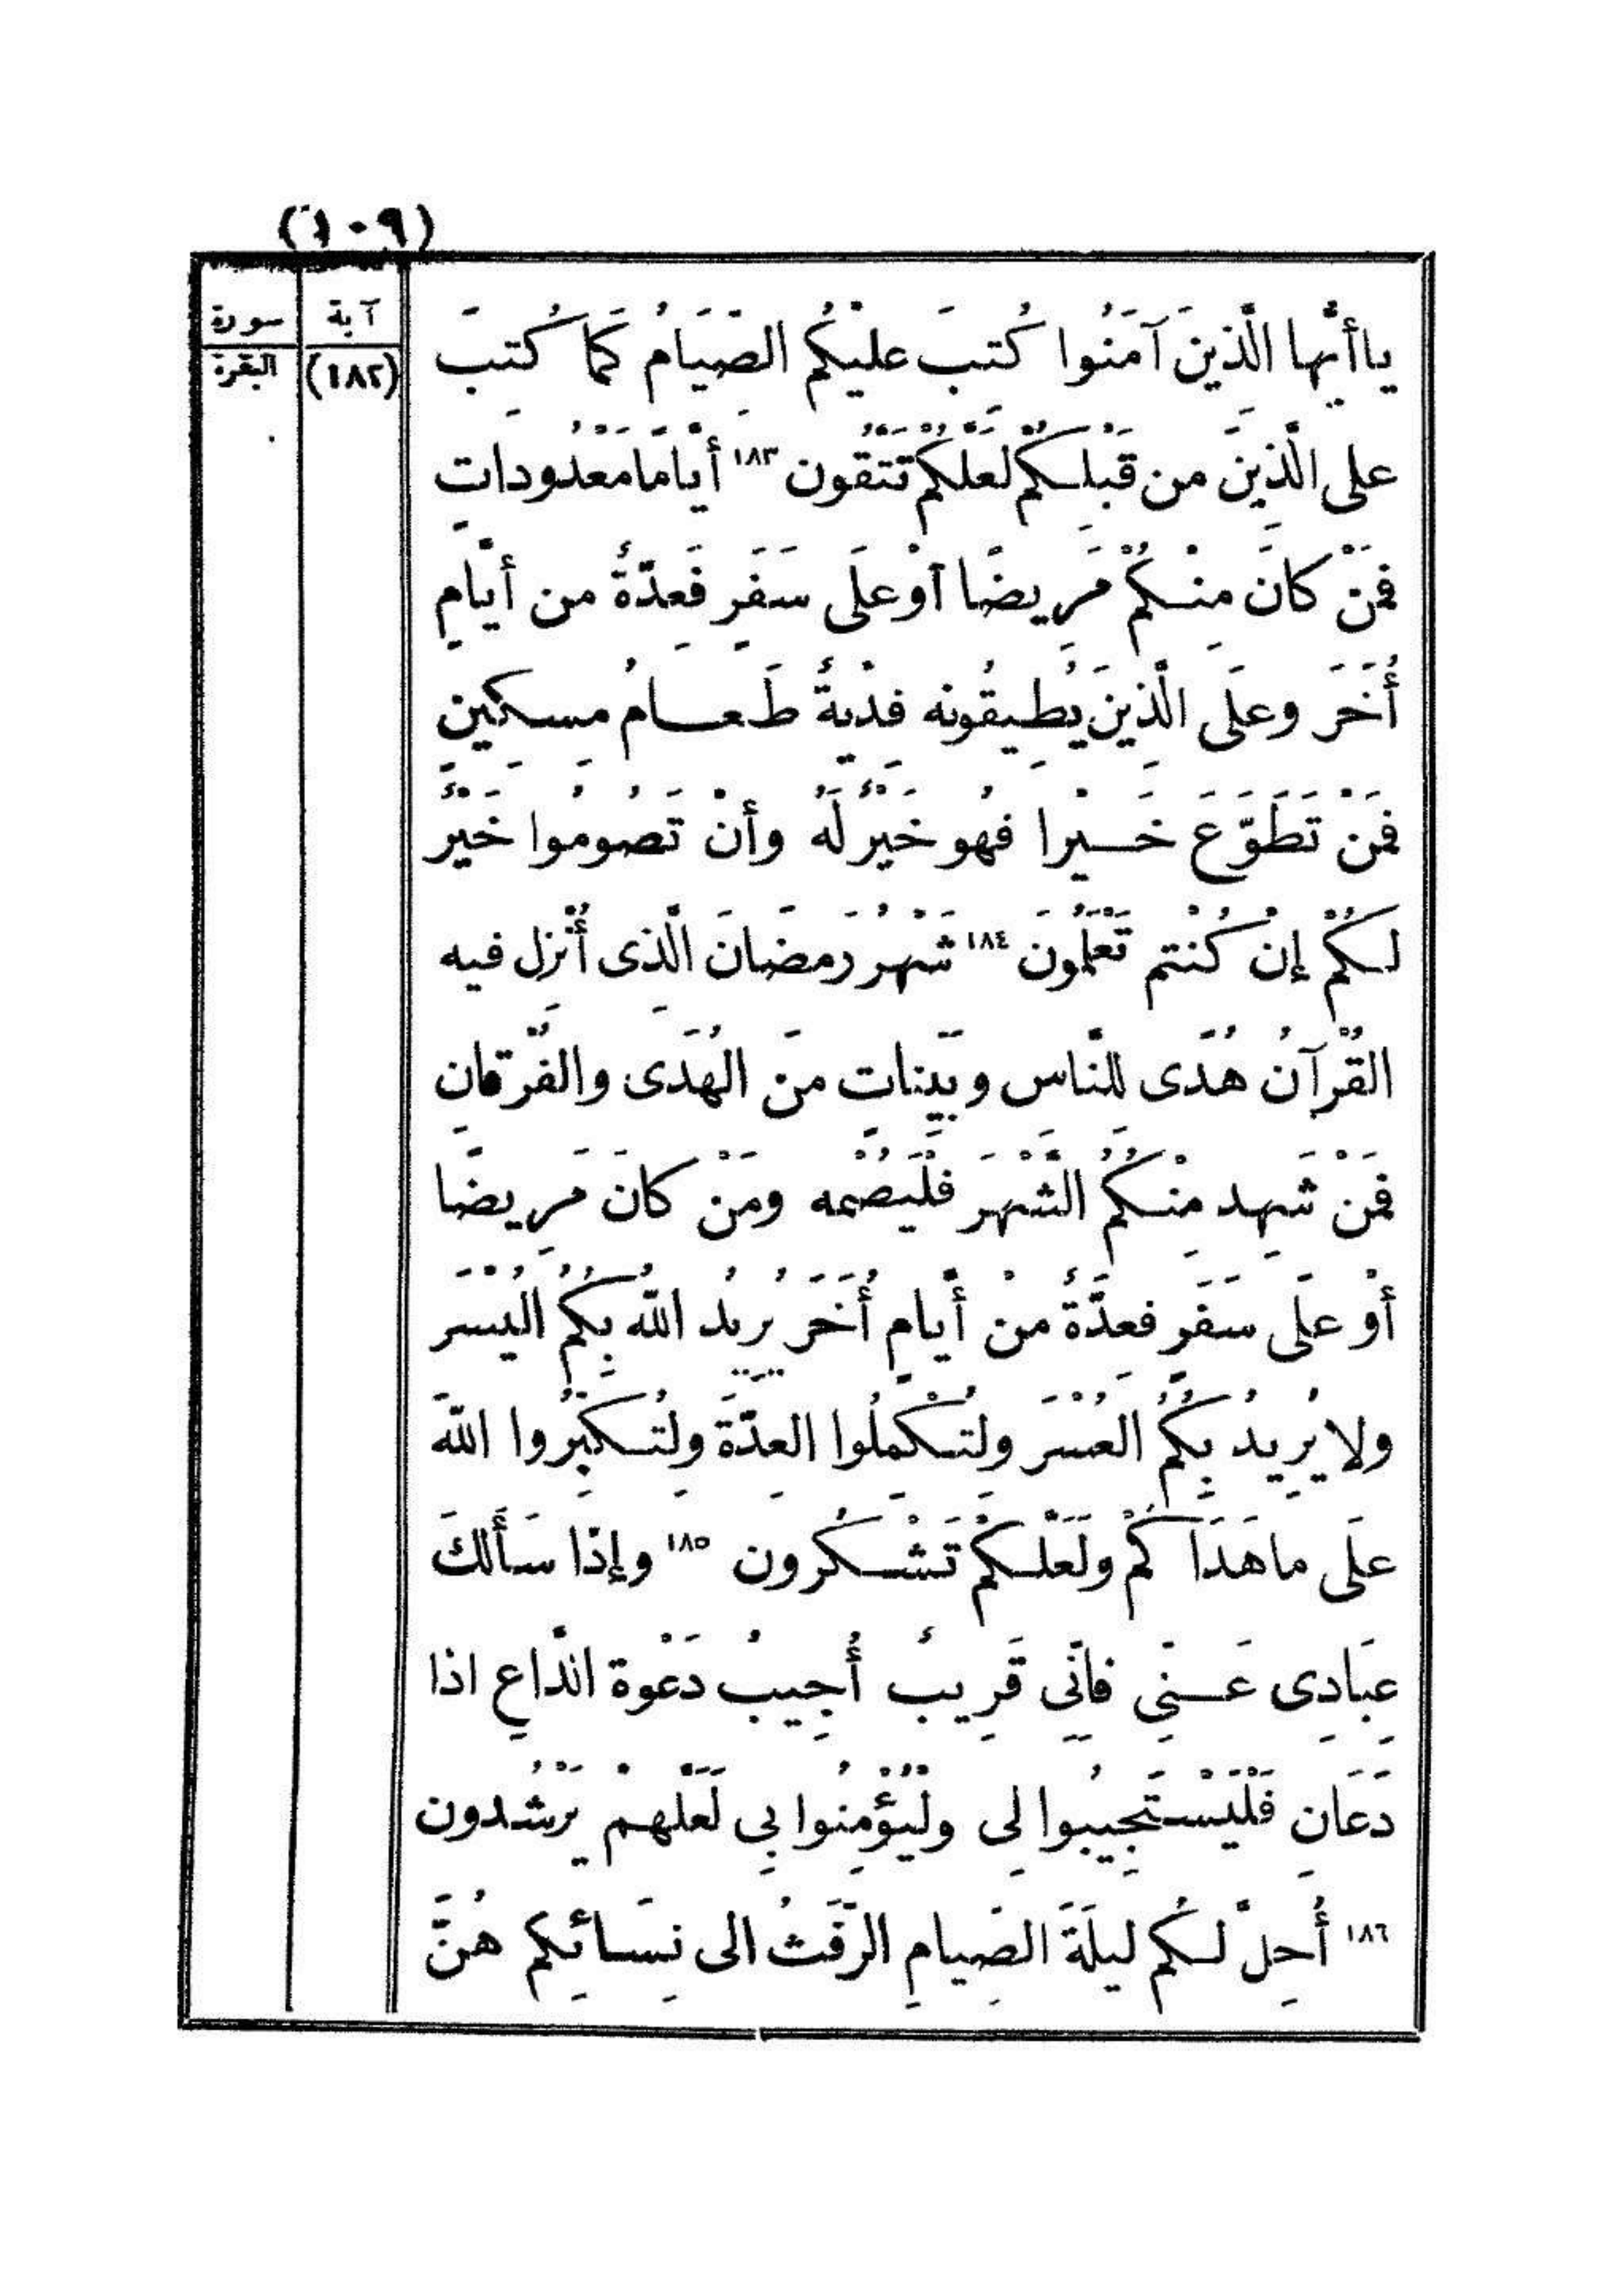 (١٠٩)
آية
سورة
(١٨٢)
البقرة
ياأيّها الَّذِينَ آمَنُوا كُتِبَ عليْكُم الصِّيَامُ كَمَا كُتِبَ
على الَّذِينَ من قَبْلِكُمْ لَعَلَّكُمْ تَتَّقُون ١٨٣ أيَّامًا مَعْدُوداتٍ
فمَنْ كانَ مِنْكُمْ مَرِيضًا أوْ علَى سَفَرٍ فَعِدّةٌ من أيّامٍ
أُخَرَ وعلَى الَّذِينَ يُطِيقُونه فِدْيةٌ طَعامُ مِسكينٍ
فمَنْ تَطَوّعَ خَيْرا فهُو خَيْرٌ لَهُ وأنْ تَصُومُوا خَيْرٌ
لكُمْ إنْ كُنْتم تَعْلَمُونَ ١٨٤ شَهْرُ رَمضَانَ الَّذِى أُنْزِل فيه
القُرْآنُ هُدًى للنَّاسِ وبَيّناتٍ منَ الهُدَى والفُرْقانِ
فمَنْ شَهِد مِنْكُمُ الشَّهْرَ فلْيَصُمْه ومَنْ كانَ مَرِيضًا
أوْ علَى سَفَرٍ فعِدَّةٌ منْ أيَّامٍ أُخَرَ يُرِيدُ اللهُ بِكُمُ اليُسْرَ
ولا يُرِيدُ بِكُمُ العُسْرَ ولِتُكْمِلُوا العِدّةَ ولِتُكبِّرُوا اللهَ
علَى ما هَدَاكُمْ ولَعَلَّكُمْ تَشْكُرون ١٨٥ وإذَا سَأَلكَ
عِبَادِى عَنّى فإنّى قَرِيبٌ أُجِيبُ دَعْوة الدّاعِ اذا
دَعَانِ فَلْيَسْتَجِيبُوا لِى ولْيُؤْمِنُوا بِى لَعَلَّهمْ يَرْشُدون
١٨٦ أُحِلَّ لكُم ليلَةَ الصِيامِ الرّفَثُ الى نِسَائِكم هُنَّ